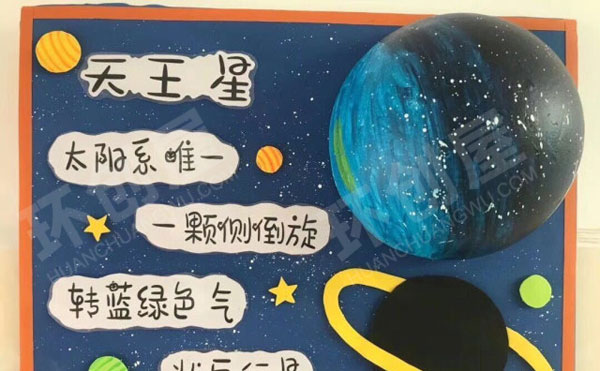 天王星
太阳系唯一
一颗侧倒旋
转蓝绿色气
状巨行星
环创屋
HUANCHUANGWU.COM
环创屋
HUANCHUANGWU.COM